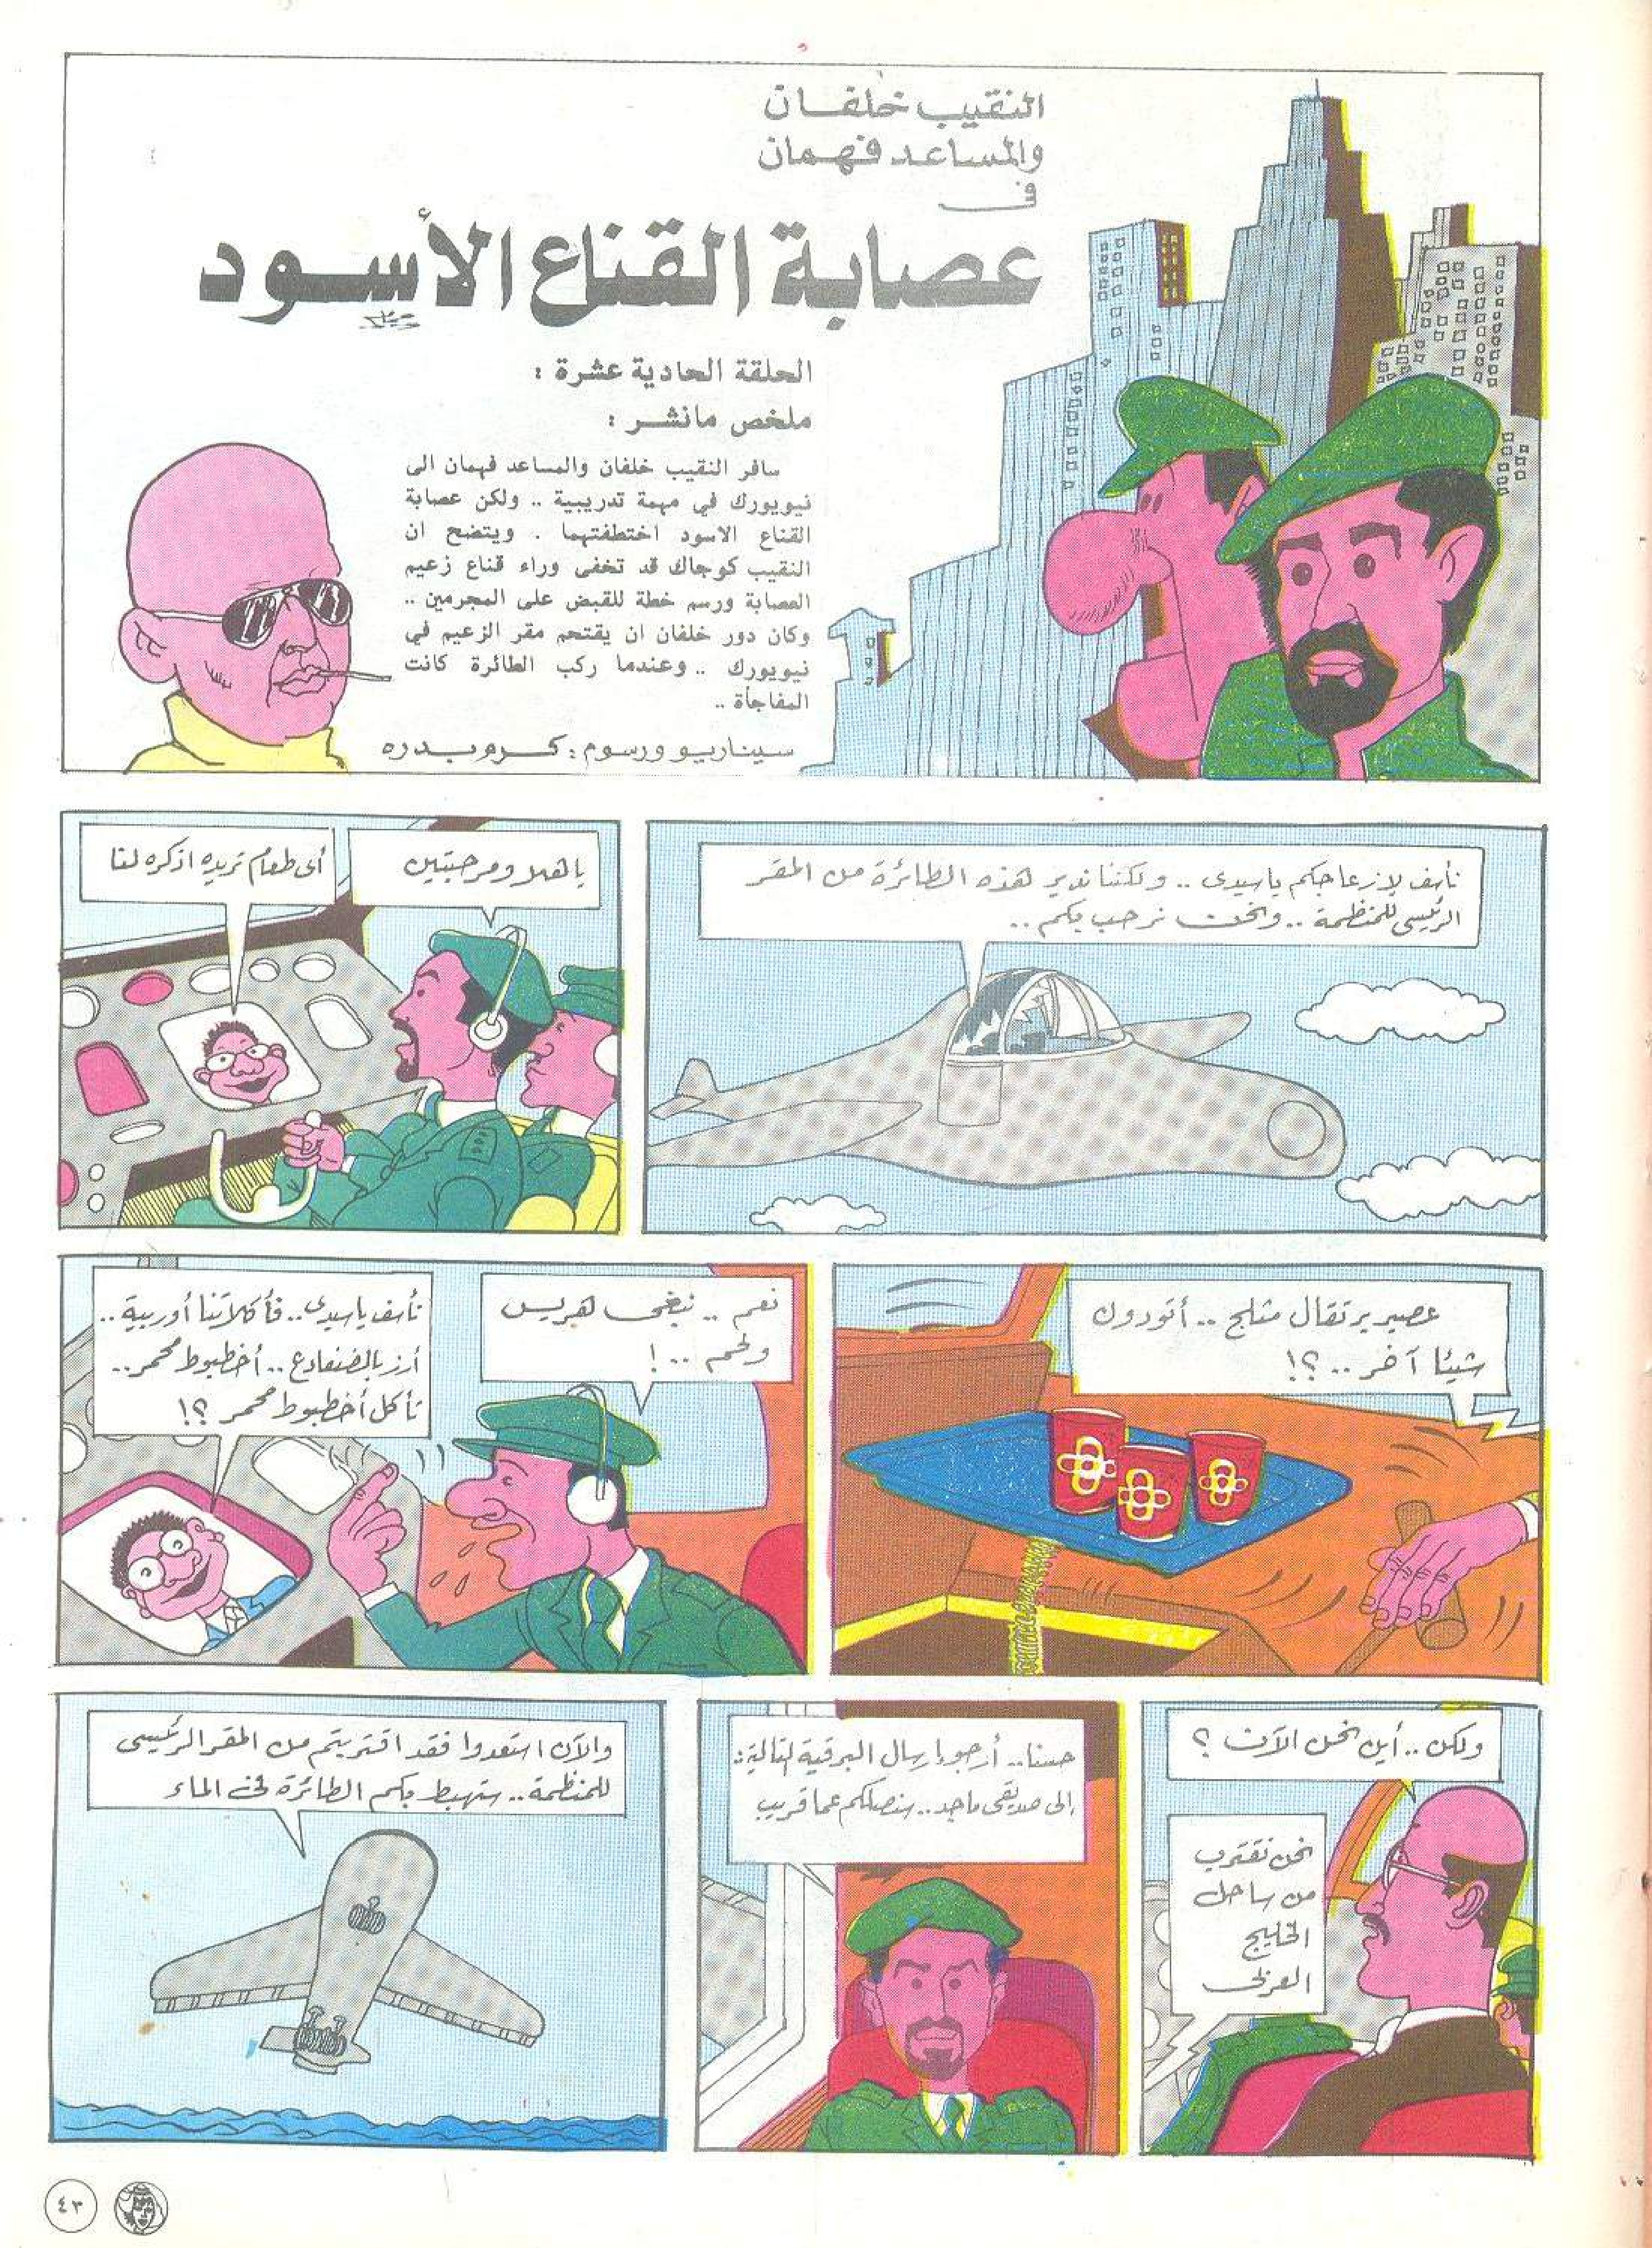 النقيب خلفان
والمساعد فهمان
فى
عصابة القناع الأسود
الحلقة الحادية عشرة :
ملخص مانشر :
سافر النقيب خلفان والمساعد فهمان الى
نيويورك في مهمة تدريبية .. ولكن عصابة
القناع الاسود اختطفتهما . ويتضح ان
النقيب كوجاك قد تخفى وراء قناع زعيم
العصابة ورسم خطة للقبض على المجرمين ..
وكان دور خلفان ان يقتحم مقر الزعيم في
نيويورك .. وعندما ركب الطائرة كانت
المفاجأة ..
سيناريو ورسوم : كرم بدره
نأسف لازعاجكم ياسيدى .. ولكننا ندير هذه الطائرة من المقر
الرئيسى للمنظمة .. ونحن نرحب بكم ..
ياهلا ومرحبتين
أى طعام تريده اذكره لنا
عصير برتقال مثلج .. أتودون
شيئا آخر .. ؟!
نعم .. نبغى هريس
ولحم .. !
نأسف ياسيدى .. فأكلاتنا أوربية ..
أرز بالضفادع .. أخطبوط محمر ..
تأكل أخطبوط محمر ؟!
ولكن .. أين نحن الآن ؟
نحن نقترب
من ساحل
الخليج
العربى
حسنا .. أرجو إرسال البرقية التالية :
إلى صديقى ماجد .. سنصلكم عما قريب
والآن استعدوا فقد اقتربتم من المقر الرئيسى
للمنظمة .. ستهبط بكم الطائرة فى الماء
٤٣